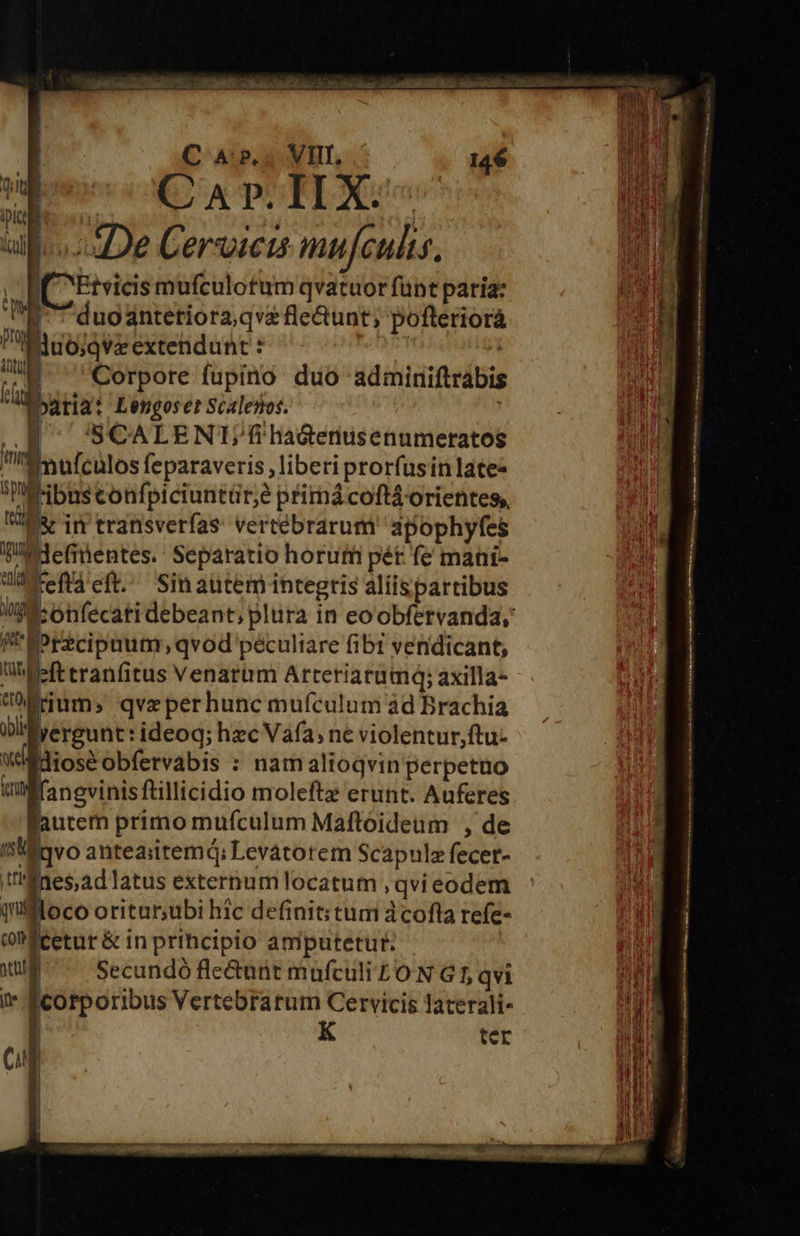 CAP. VIII. 146
CAP. IIX.
De Cervicis muſculis.
CErvicis muſculorum qvatuor ſunt paria:
duo anteriora, qvæ flectunt, poſteriora
duo, qvæ extendunt:
Corpore ſupino duo adminiſtrabis
paria: Longos et Scalenos.
SCALENI, ſi hactenus enumeratos
muſculos ſeparaveris, liberi prorſus in late-
ribus conſpiciuntur, è primâ coſtâ orientes,
& in transverſas vertebrarum apophyſes
deſinentes. Separatio horum per ſe mani-
feſta eſt. Sin autem integris aliis partibus
conſecari debeant, plura in eo obſervanda,
Præcipuum, qvod peculiare ſibi vendicant,
eſt tranſitus Venarum Arteriarumq; axilla-
rium, qvæ per hunc muſculum ad Brachia
vergunt: ideoq; hæc Vaſa, ne violentur, ſtu-
diosè obſervabis : nam alioqvin perpetuo
ſangvinis ſtillicidio moleſtæ erunt. Auferes
autem primo muſculum Maſtoideum , de
qvo antea: itemq; Levatorem Scapulæ ſecer-
nes, ad latus externum locatum , qvi eodem
loco oritur, ubi hic definit: tum à coſta reſe-
cetur & in principio amputetur.
Secundò flectunt muſculi LONGI, qvi
corporibus Vertebrarum Cervicis laterali-
K ter